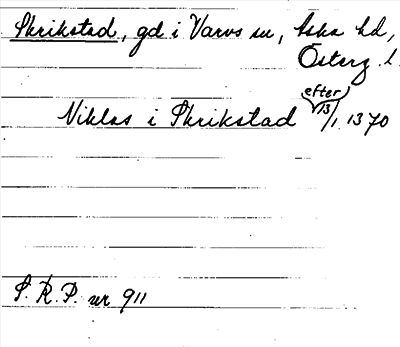 Skrikstad, gd i Varvs sn, Aska hd,
Österg. L.
Niklas i Skrikstad (efter) 13/1 1370
S. R. P. nr 911